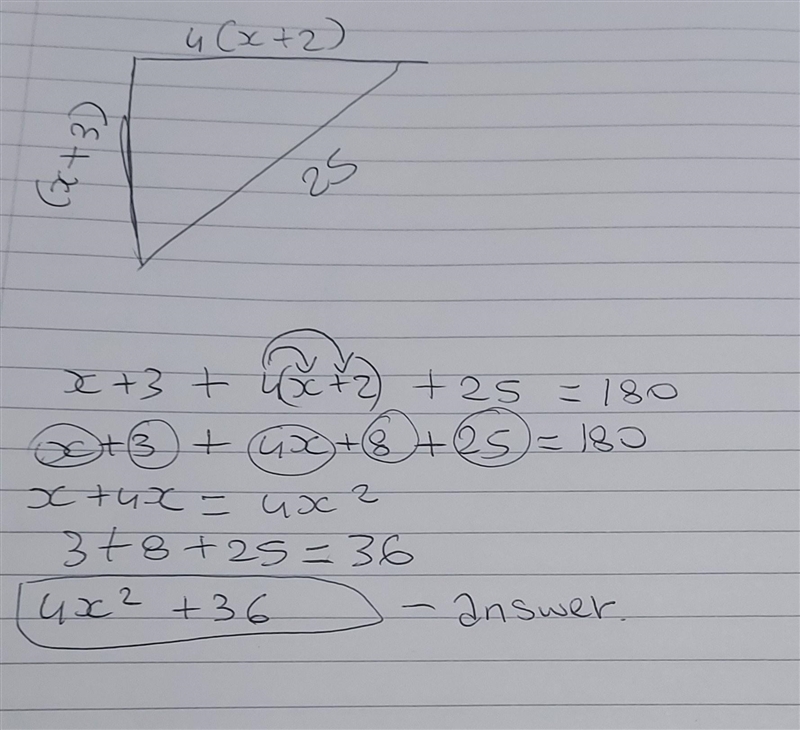 4(x+2)
(x+3)
25
x+3 + 4(x+2) +25 =180
x+3 + 4x+8+25=180
x+4x = 4x²
3+8+25=36
4x² +36 - answer.